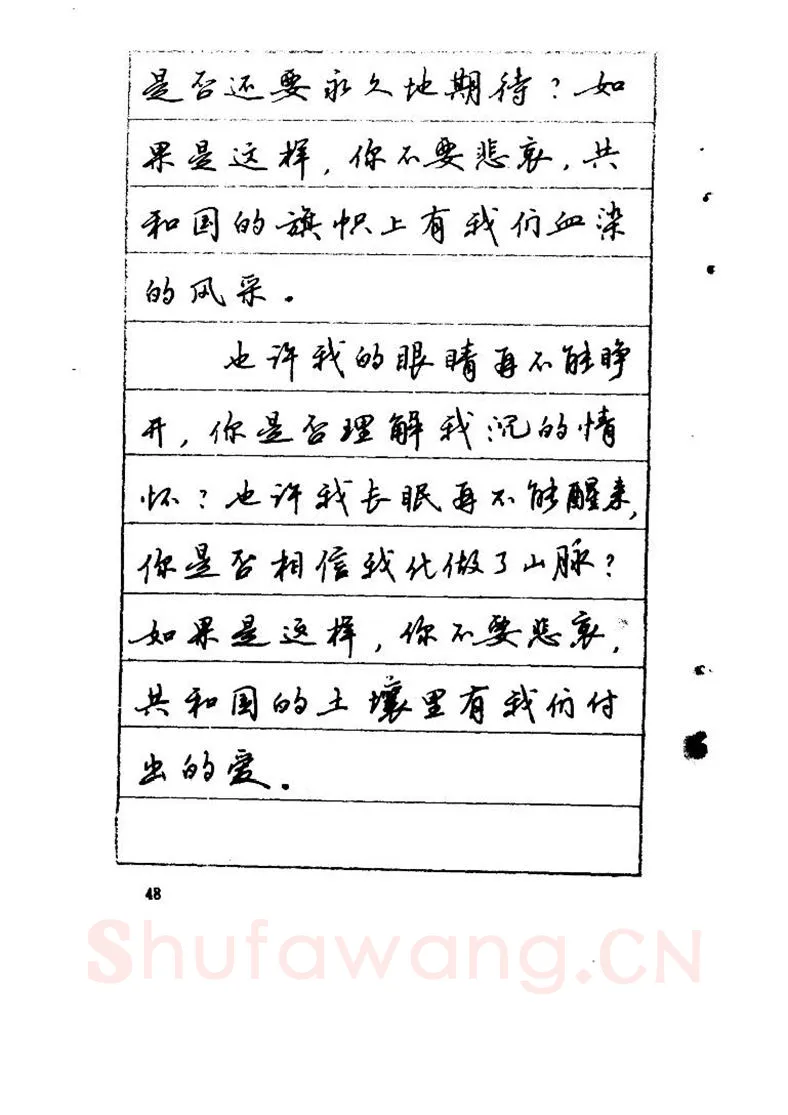 是否还要永久地期待?如
果是这样,你不要悲哀,共
和国的旗帜上有我们血染
的风采.
也许我的眼睛再不能睁
开,你是否理解我沉的情
怀?也许我长眠再不能醒来,
你是否相信我化做了山脉?
如果是这样,你不要悲哀,
共和国的土壤里有我们付
出的爱.
48
Shufawang.CN